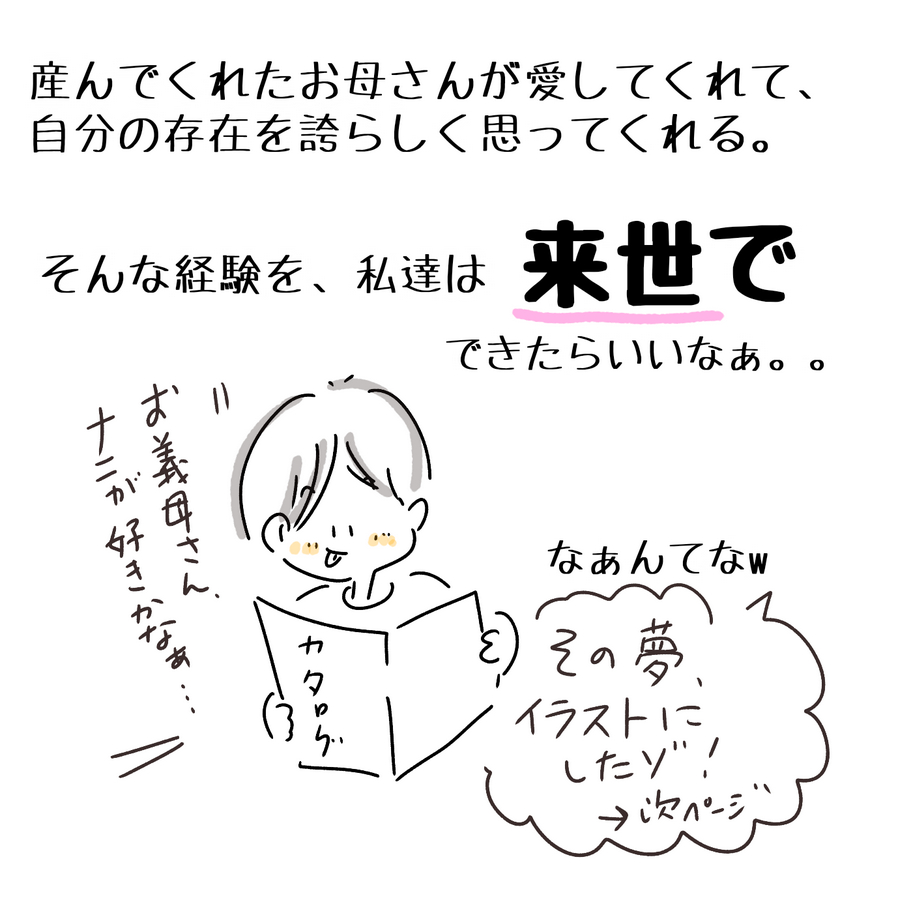 産んでくれたお母さんが愛してくれて、
自分の存在を誇らしく思ってくれる。
そんな経験を、私達は
来世で
できたらいいなぁ。。
お義母さん、
ナニが好きかなぁ…
カタログ
なぁんてなw
その夢、
イラストに
したゾ!
→次ページ